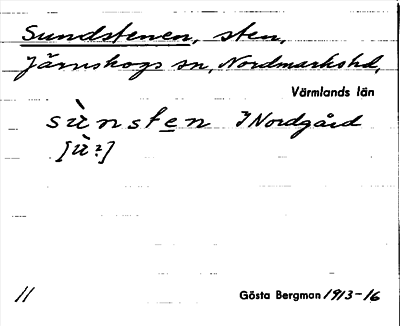 Sundstenen, sten,
Järnskogs sn, Nordmarkshd,
Värmlands län
sùnsten I Nordgård
[ù?]
11 Gösta Bergman 1913-16